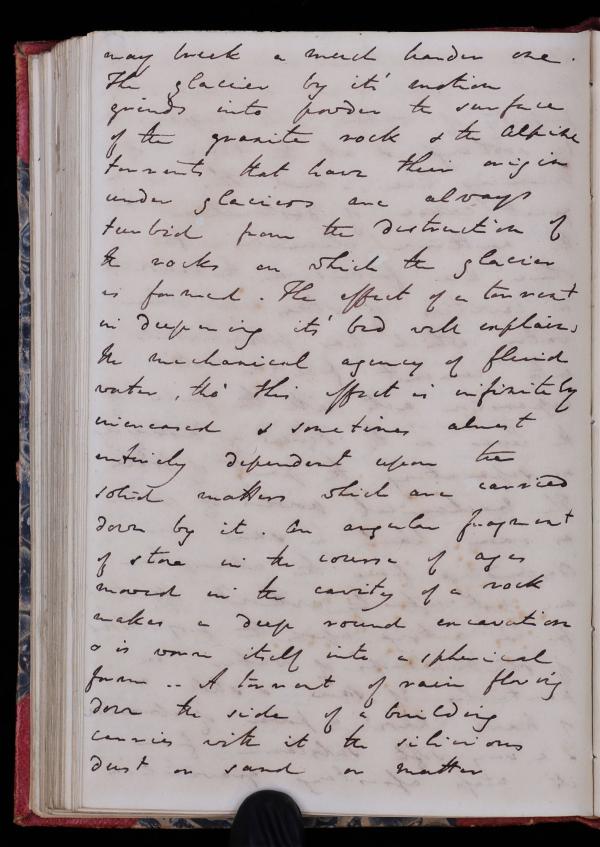 may break a much harder one.
The glacier by it's motion
grinds into powder the surface
of the granite rock & the Alpine
torrents that have their origin
under glaciers are always
turbid from the destruction of
the rocks on which the glacier
is formed. The effect of a torrent
in deepening it's bed will explain
the mechanical agency of fluid
water, tho' this effect is infinitely
increased & sometimes almost
entirely dependent upon the
solid matters which are carried
down by it. An angular fragment
of stone in the course of ages
moved in the cavity of a rock
makes a deep round excavation
& is worn itself into a spherical
form -- A torrent of rain flowing
down the side of a building
carries with it the silicious
dust or sand or matter